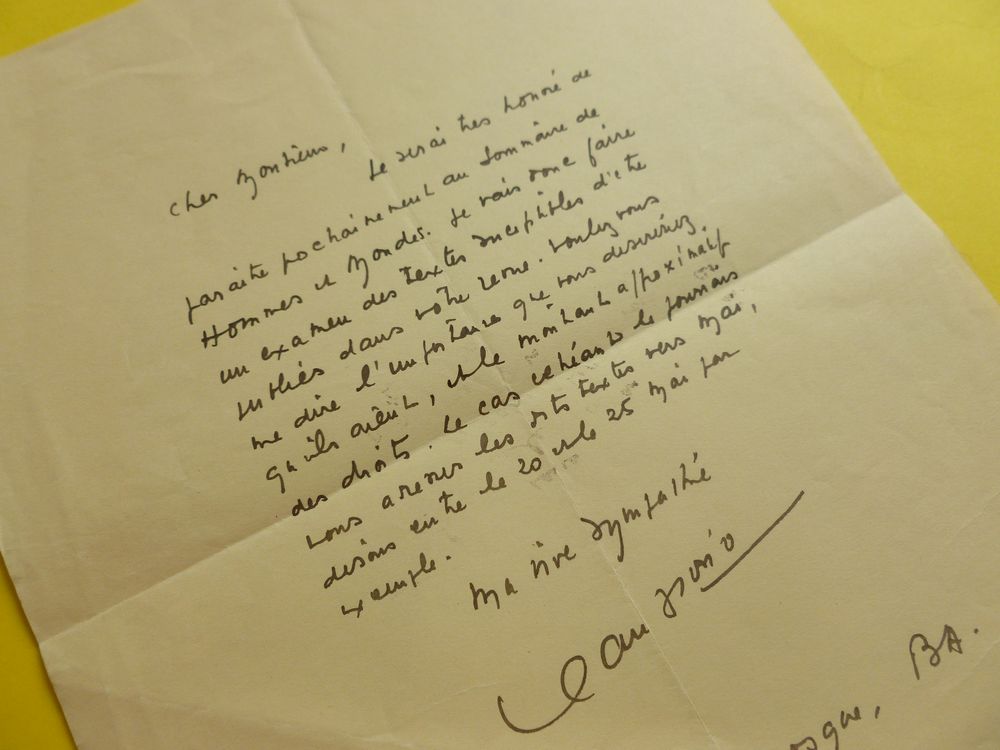 Cher Monsieur,
Je serai très honoré de
paraître prochainement au sommaire de
Hommes et Mondes. Je vais donc faire
un examen des textes susceptibles d'être
publiés dans votre revue. Voulez vous
me dire l'importance que vous desireriez
qu'ils aient, et le montant approximatif
des droits. Le cas échéant je pourrais
vous adresser les dits textes vers Mai,
disons entre le 20 et le 25 Mai par
exemple.
Ma vive sympathie
Jean Giono
BA.